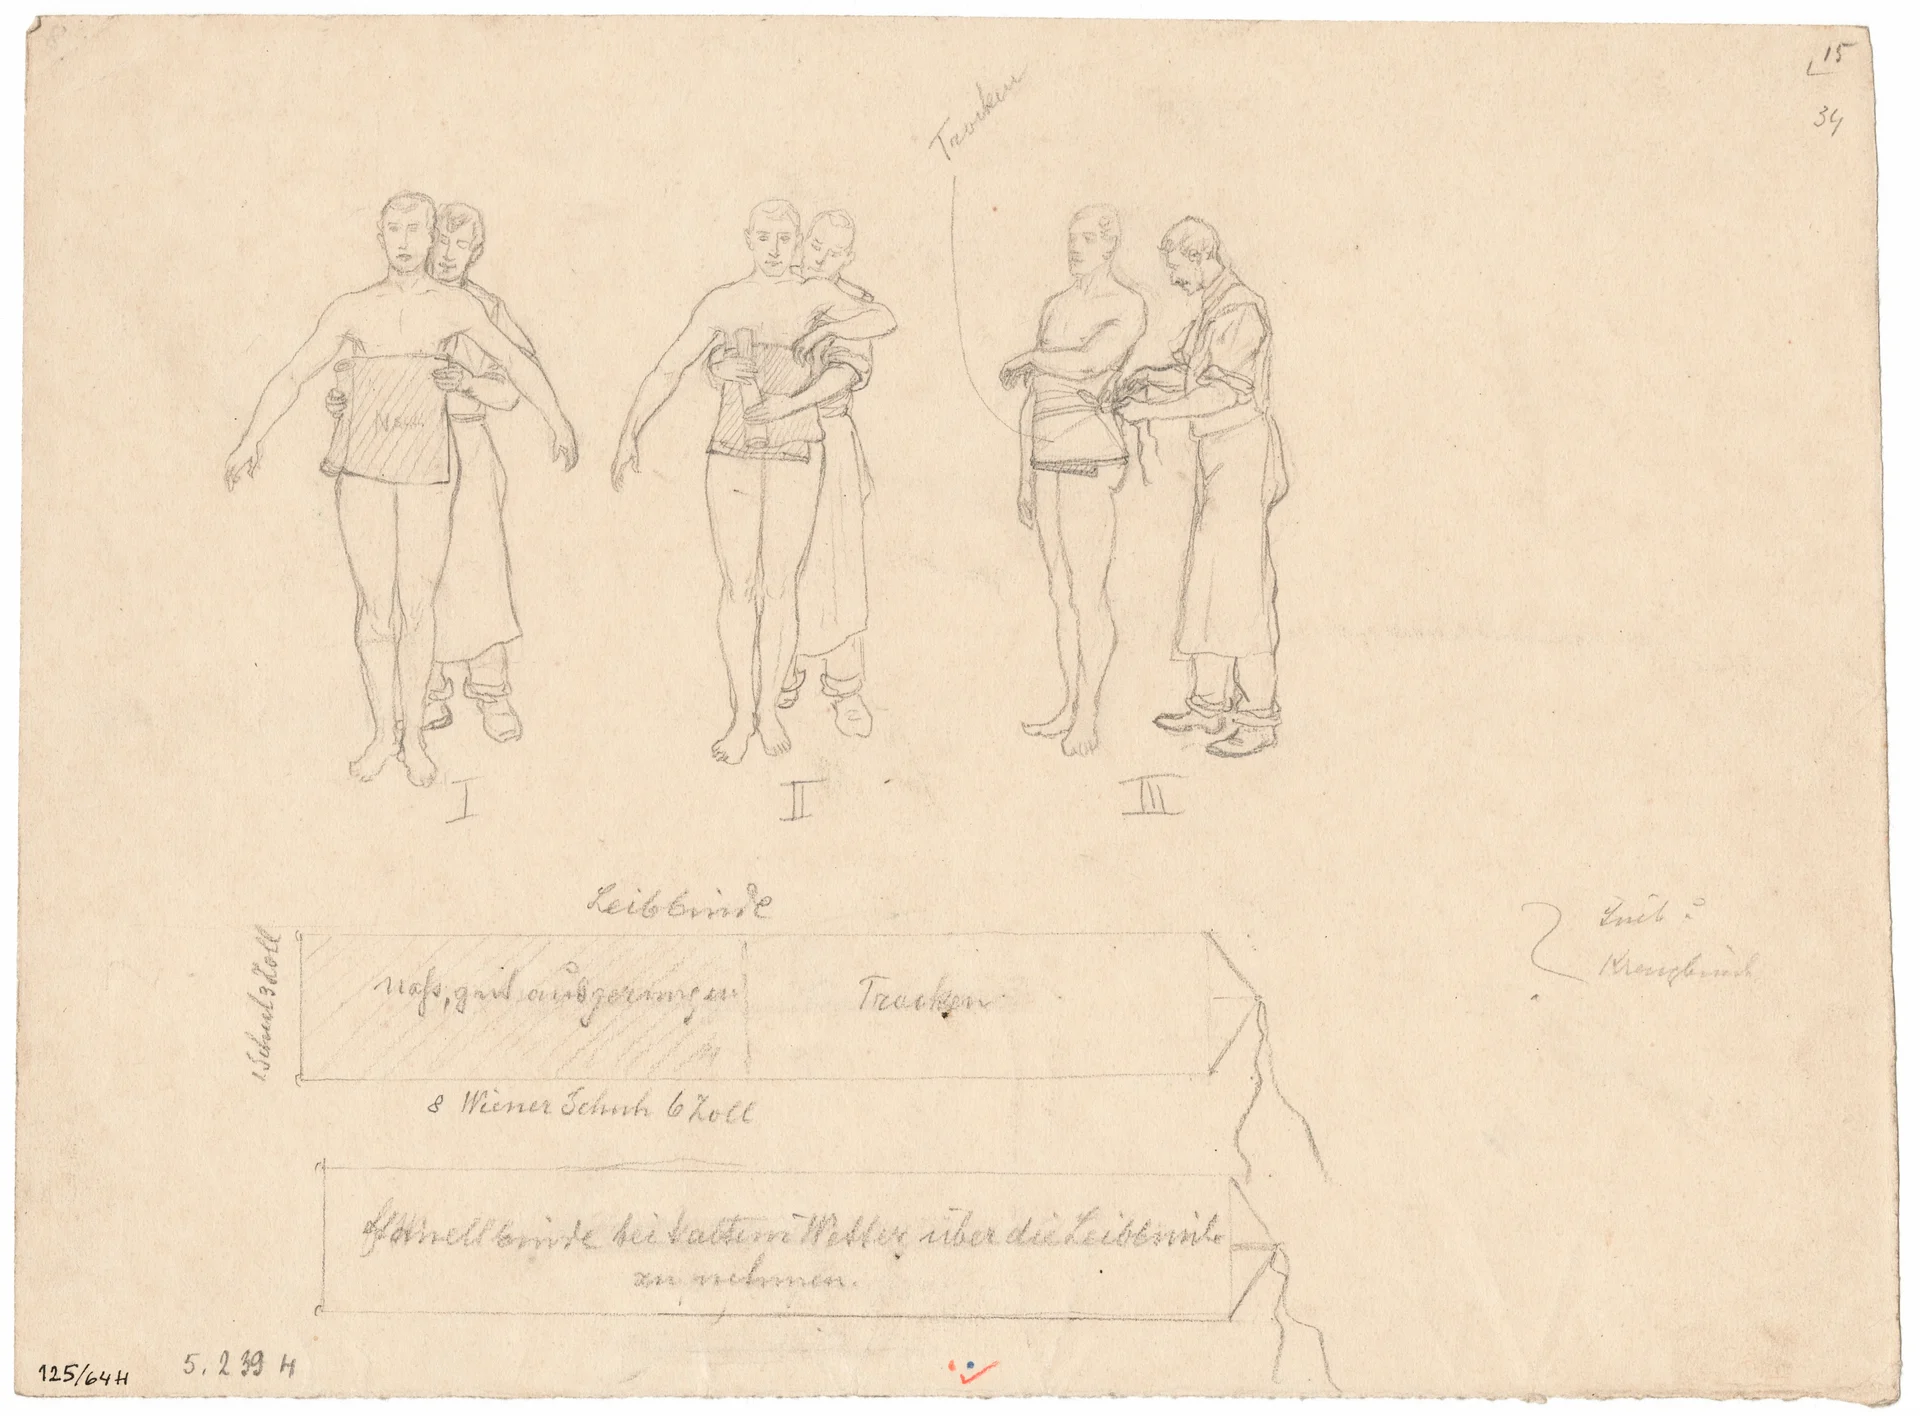 15
34
Trocken
Nass
I
II
III
Leibbinde
1 Schuh 3 Zoll
nass, gut ausgerungen
Trocken
8 Wiener Schuh 6 Zoll
Leib
Flanellbinde bei kaltem Wetter über die Leibbinde
zu nehmen.
125/64H
5.239 H